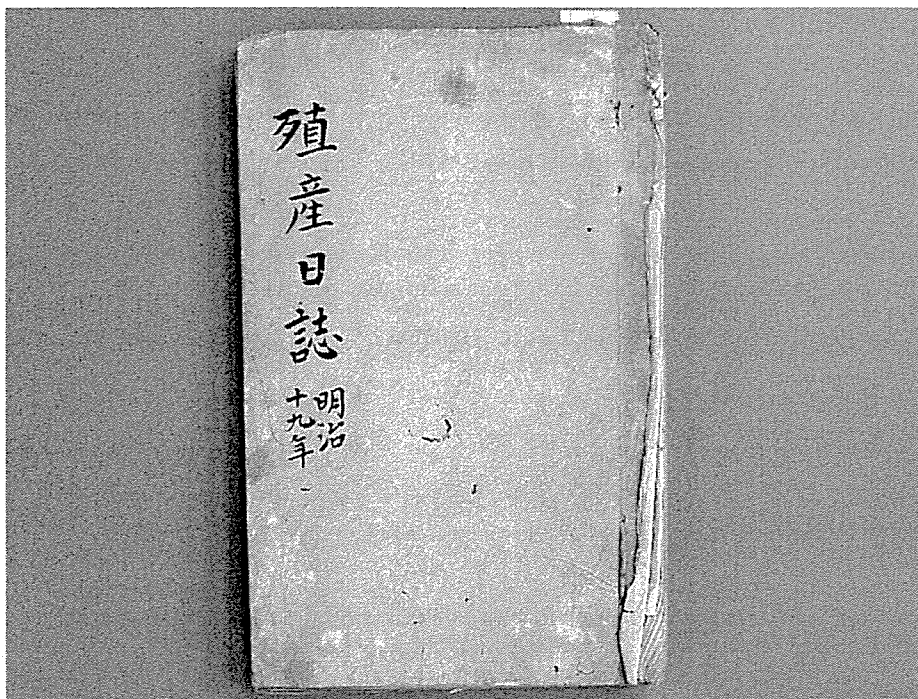 殖産日誌
明治
十九年
一